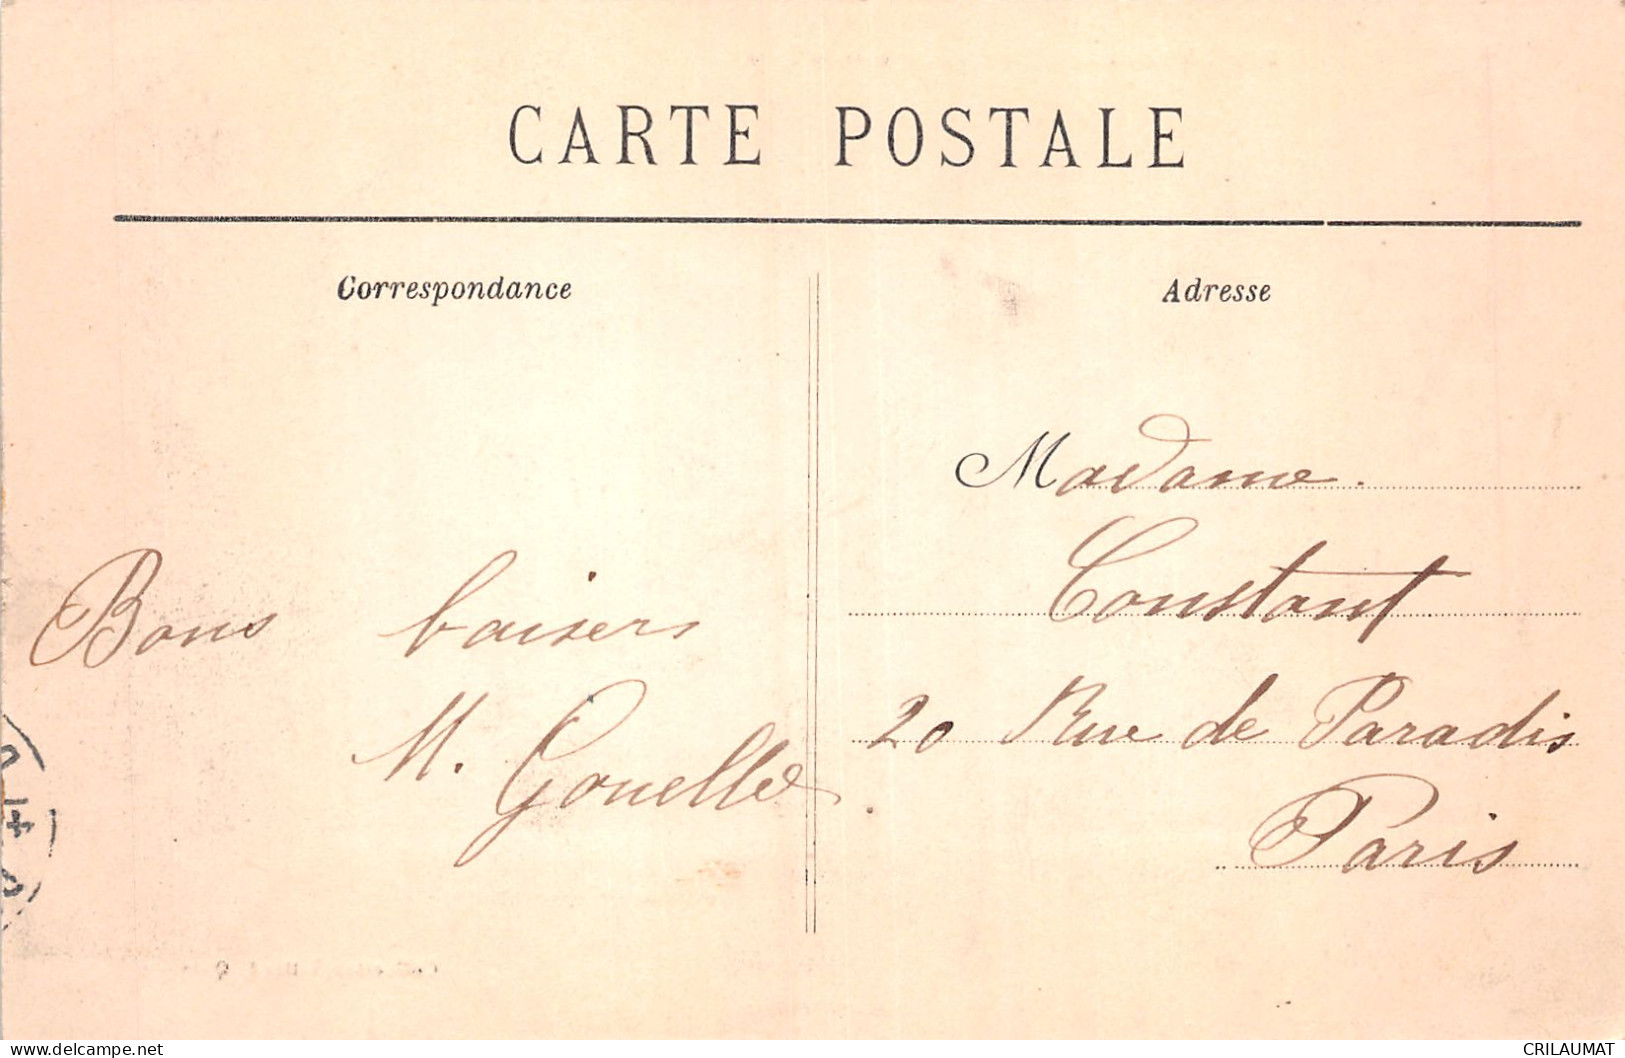 CARTE POSTALE
Correspondance
Adresse
Bons baisers
M. Gouelle
Madame.
Constant
20 Rue de Paradis
Paris
www.delcampe.net
CRILAUMAT